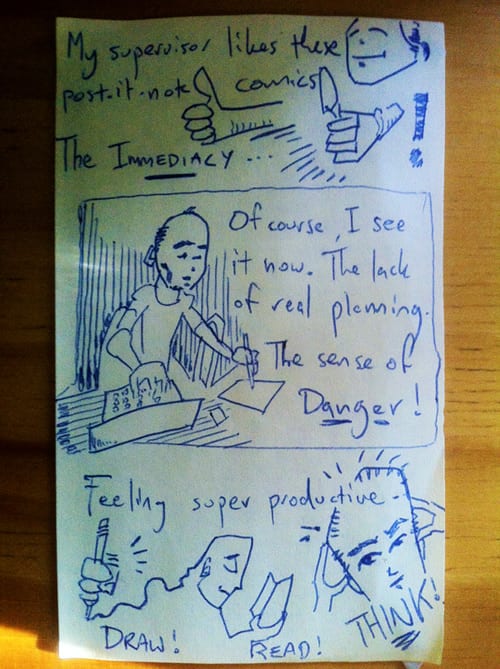 My supervisor likes these
post-it-note comics
The IMMEDIACY ...
Of course, I see
it now. The lack
of real planning.
The sense of
Danger!
Feeling super productive.
DRAW!
READ!
THINK!